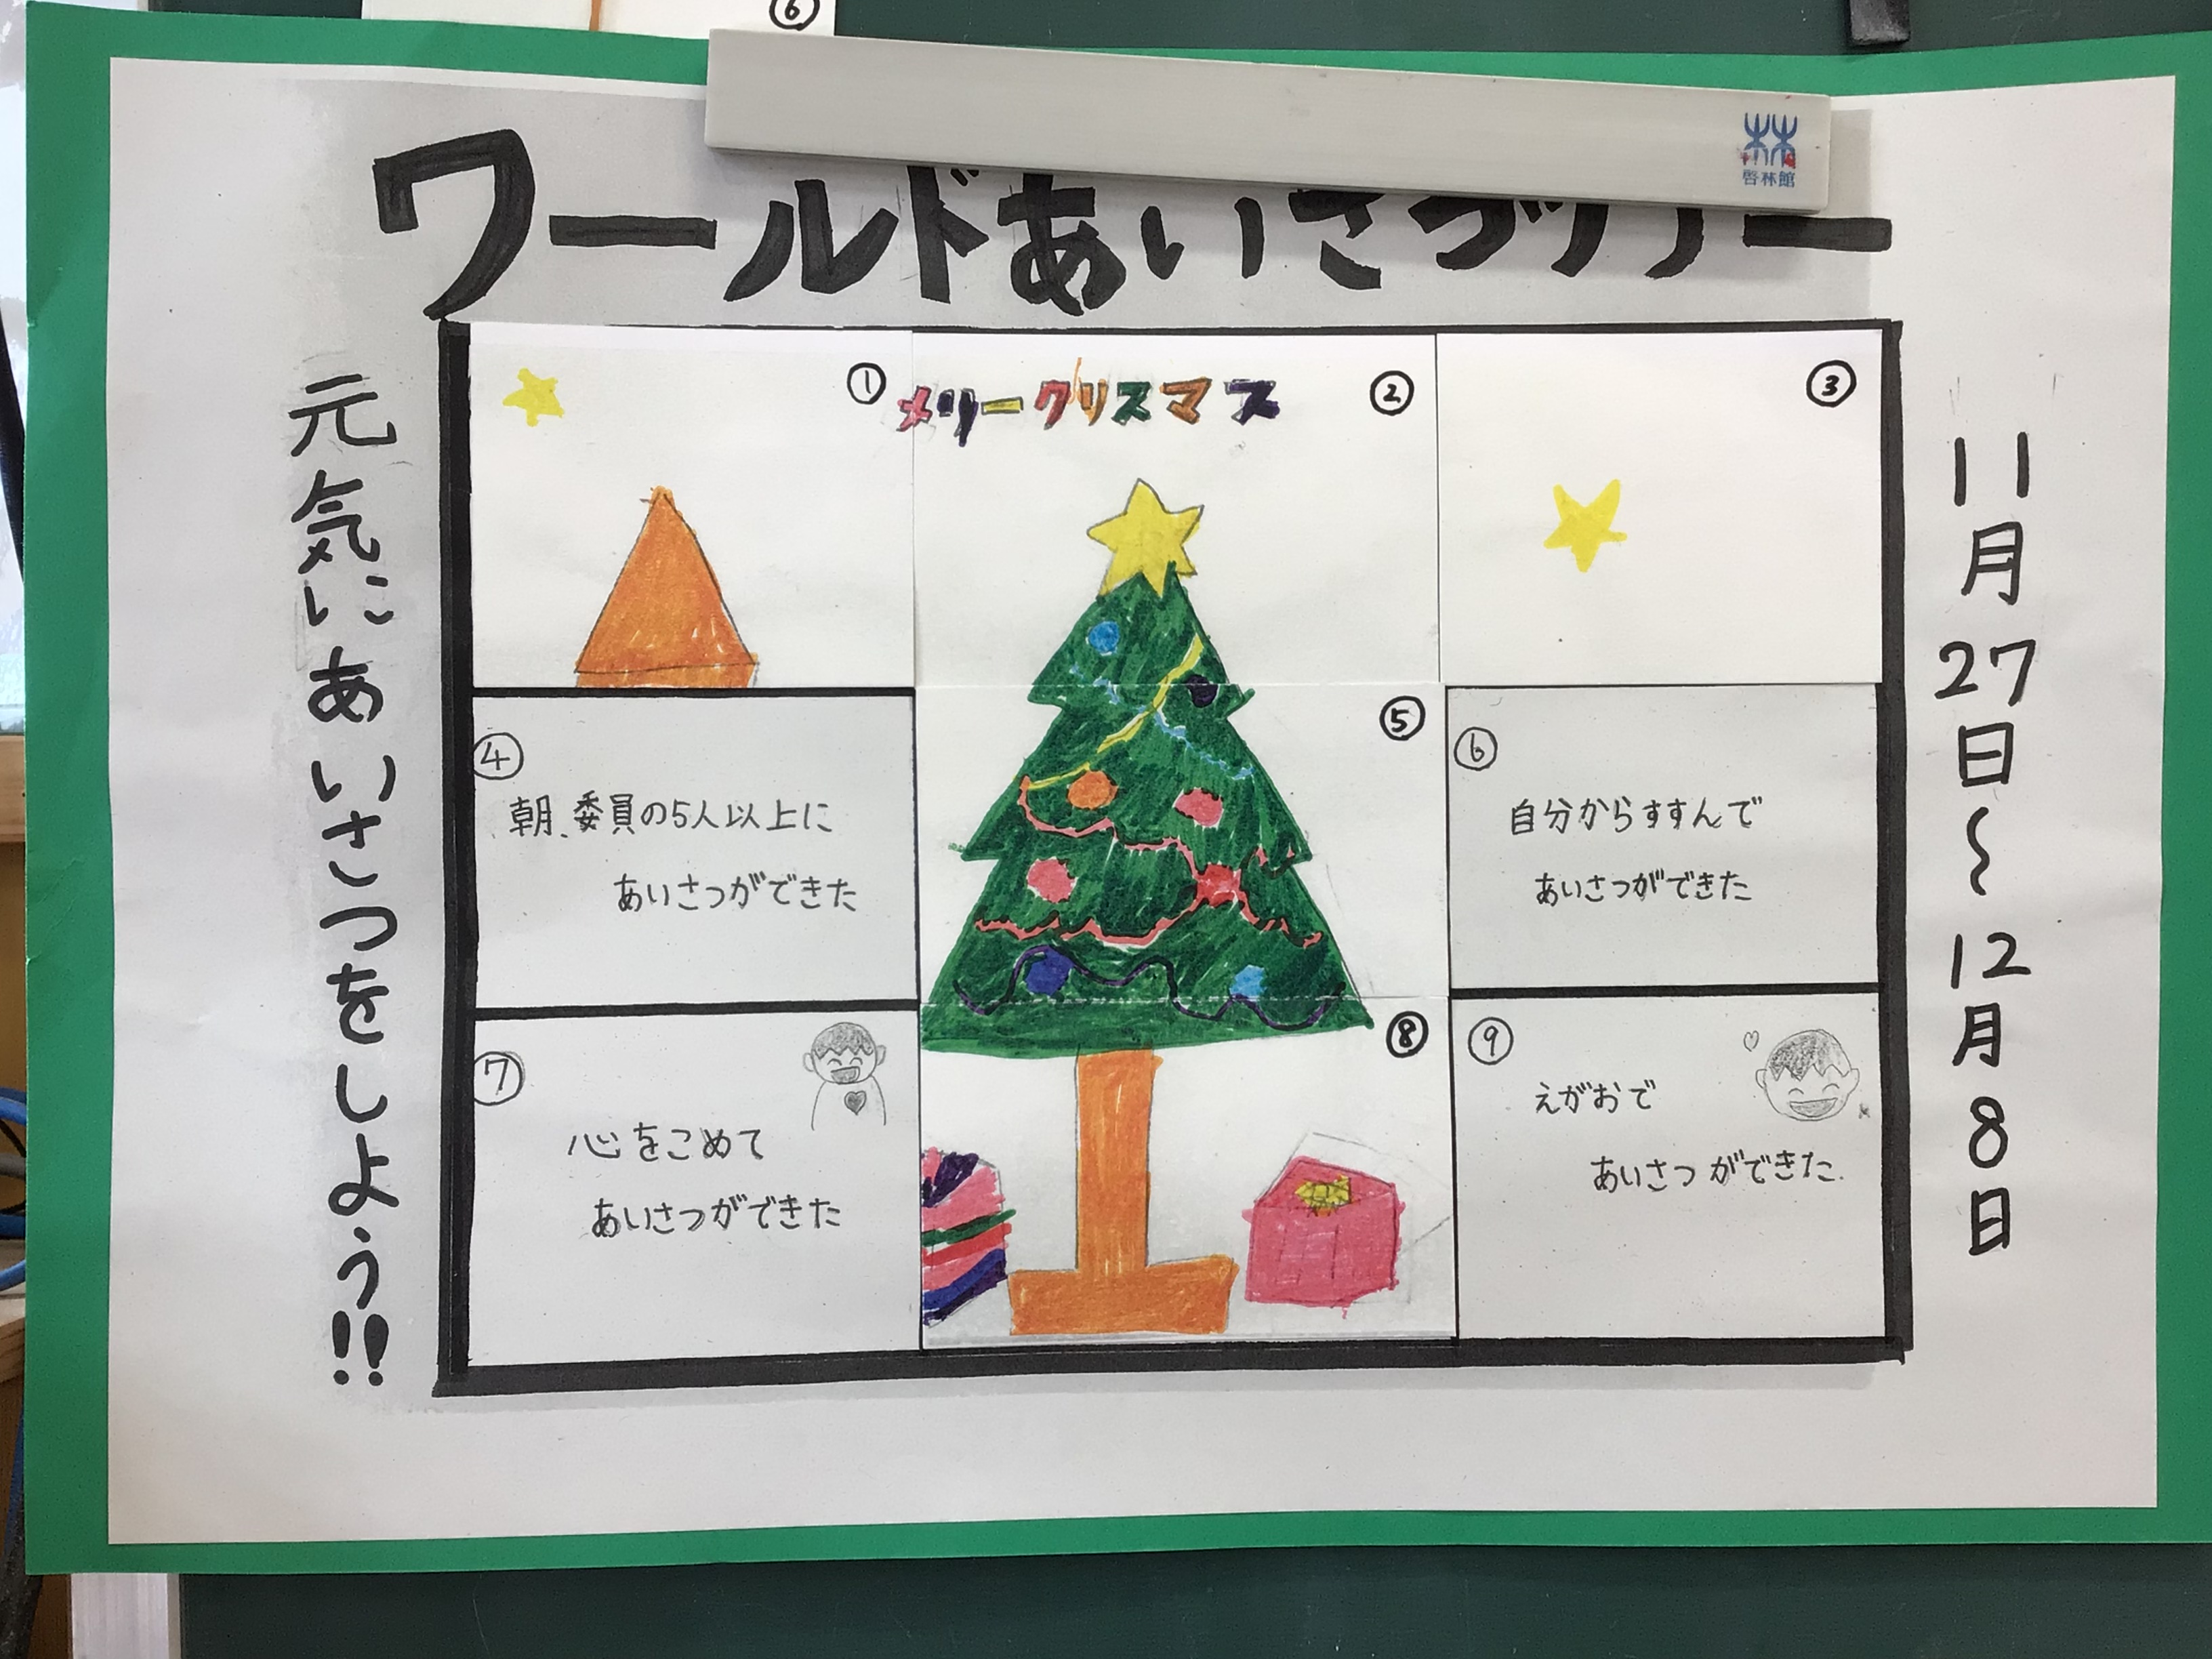 ⑥
啓林館
ワールドあいさつツアー
11月27日〜12月8日
元気にあいさつをしよう!!
①
メリークリスマス
②
③
④
朝、委員の5人以上に
あいさつができた
⑤
⑥
自分からすすんで
あいさつができた
⑦
心をこめて
あいさつができた
⑧
⑨
えがおで
あいさつができた.